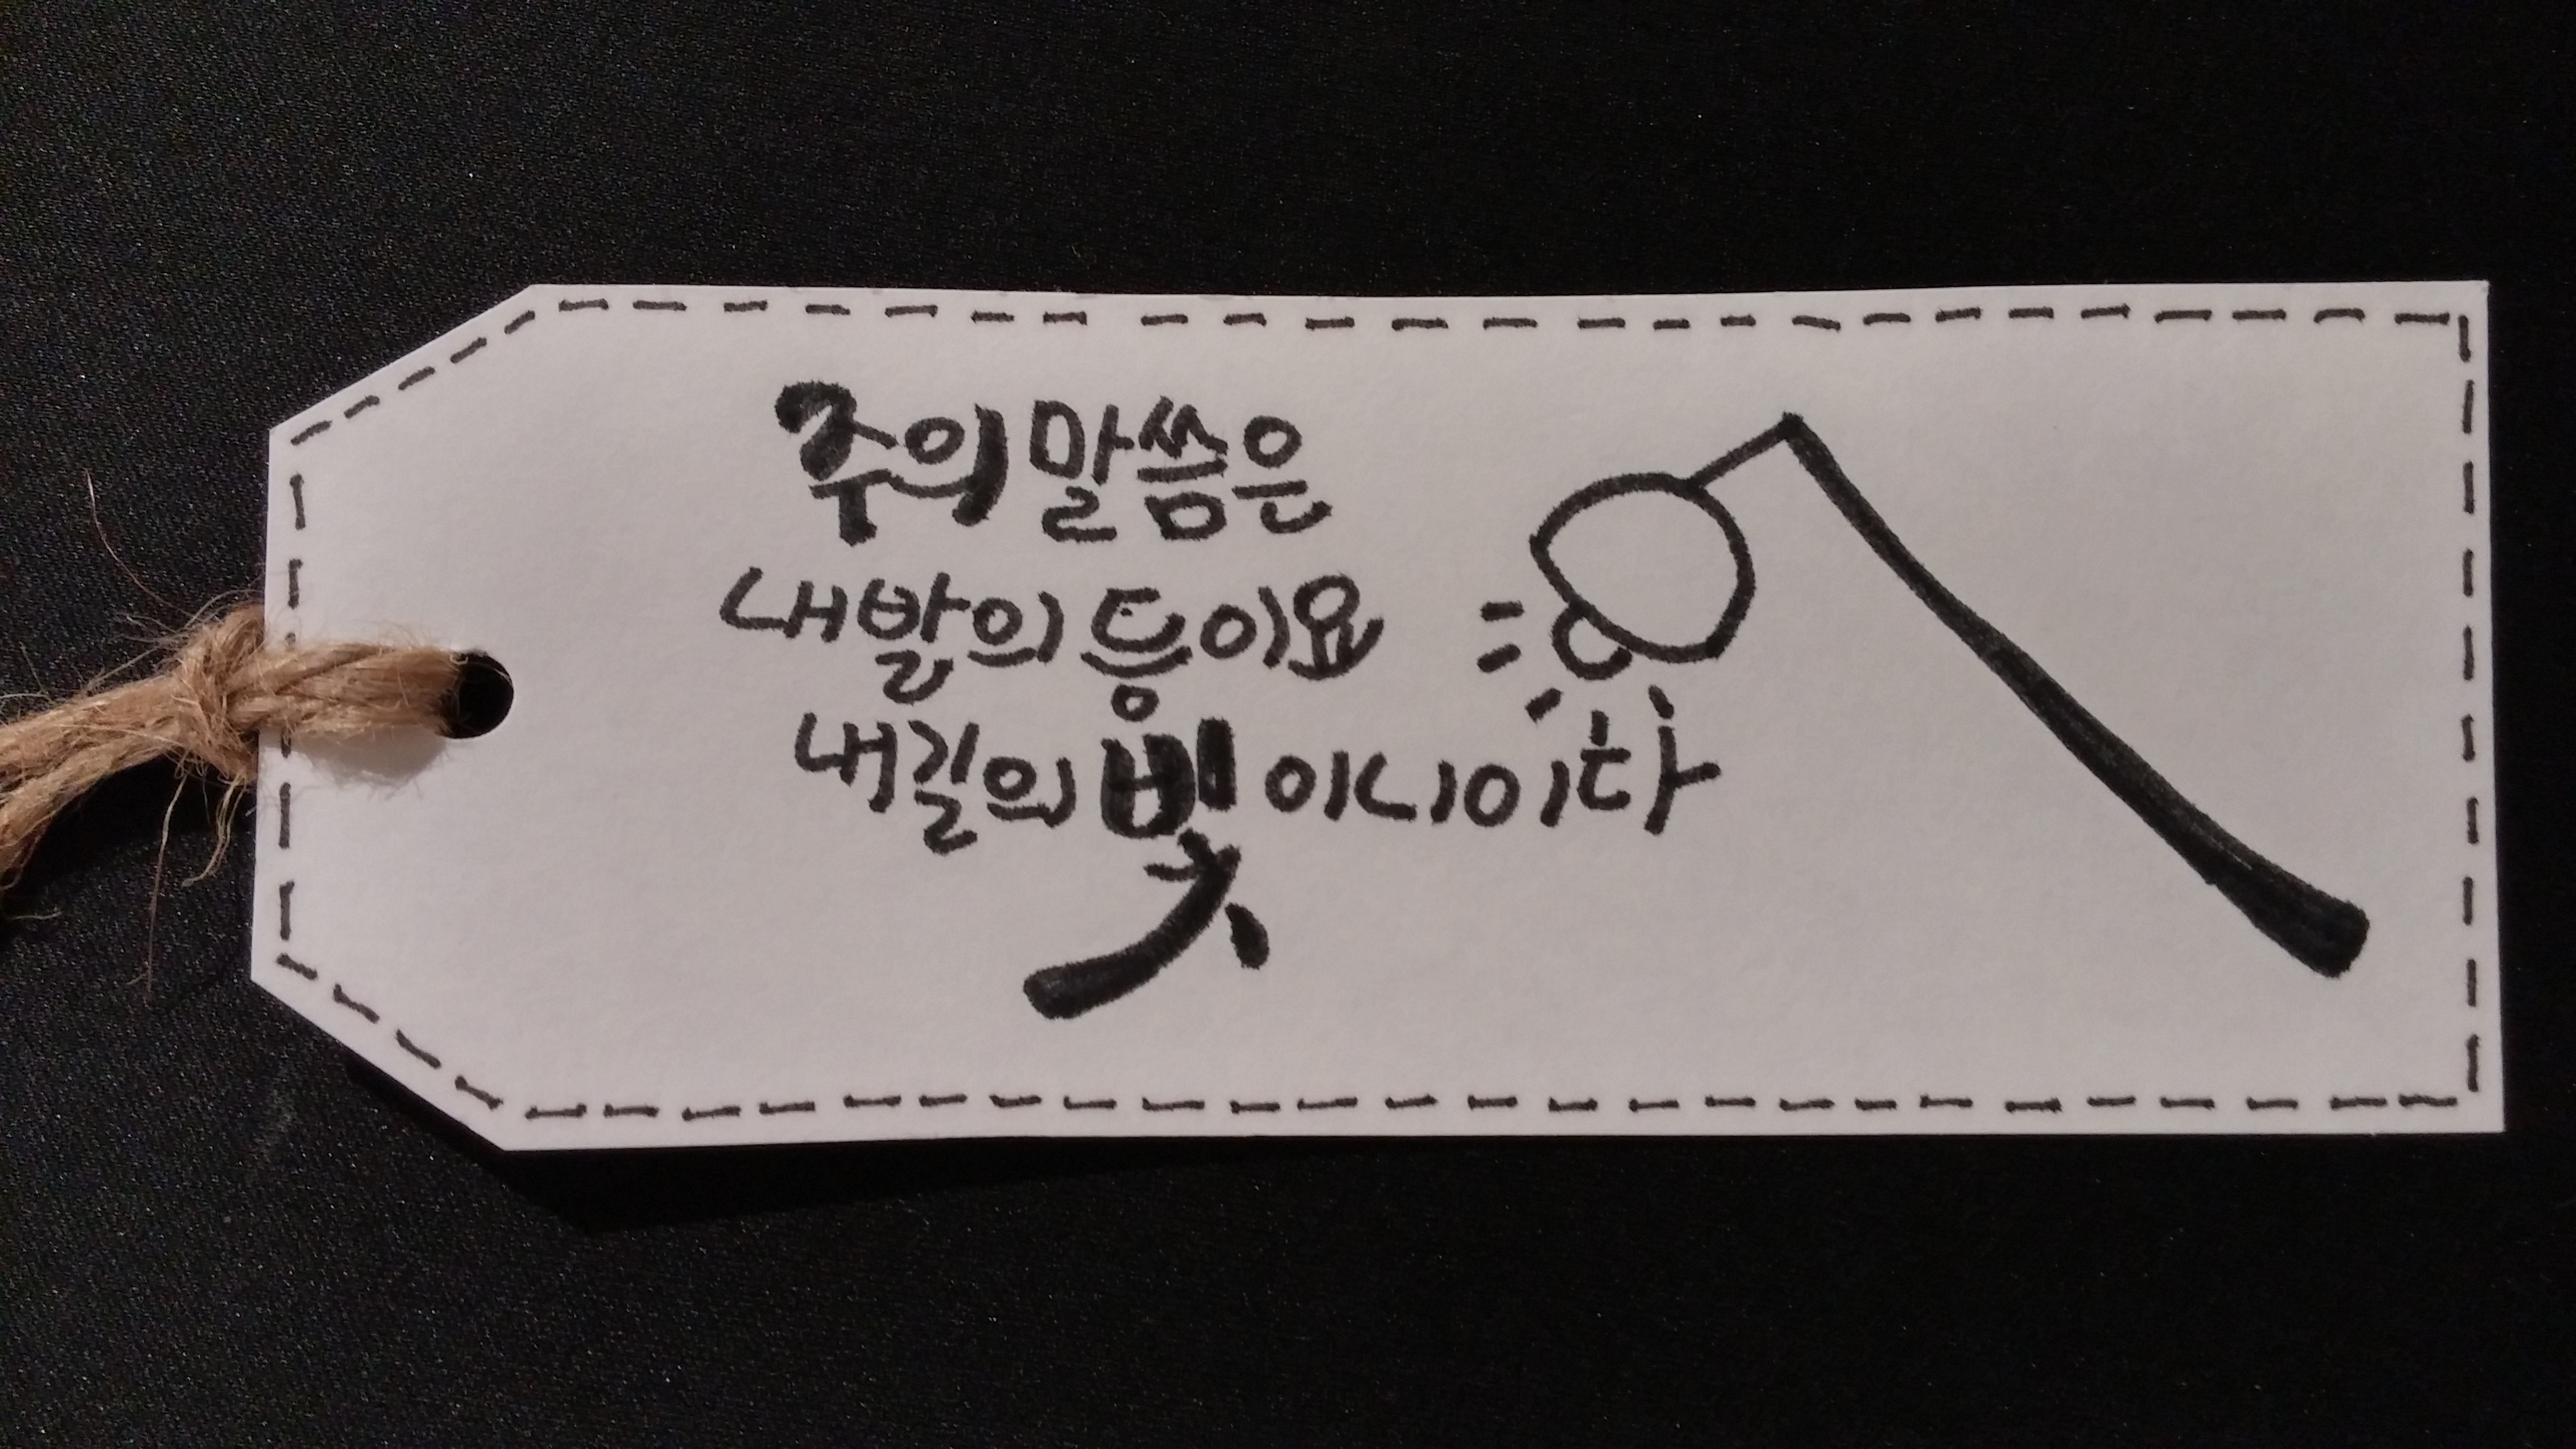 주의 말씀은
내 발의 등이요
내 길의 빛이니이다